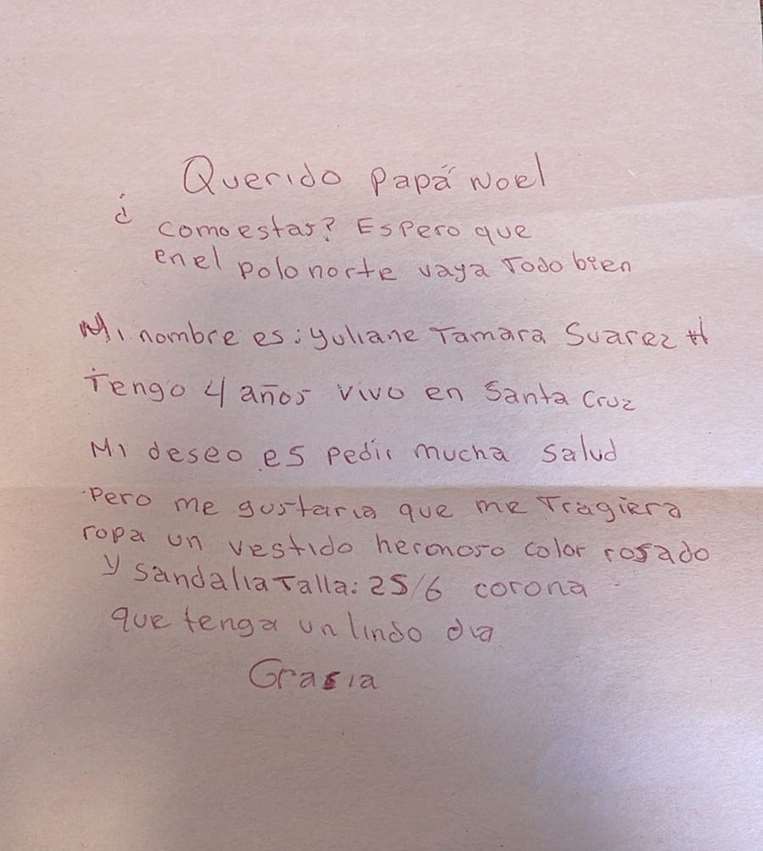 Querido Papá Noel
¿ como estas? Espero que
en el polo norte vaya Todo bien
Mi nombre es: yuliane Tamara Suarez H
Tengo 4 años vivo en Santa Cruz
Mi deseo es pedir mucha salud
Pero me gustaria que me Tragiera
ropa un vestido hermoso color rosado
y sandalia Talla: 25/6 corona
que tenga un lindo dia
Grasia